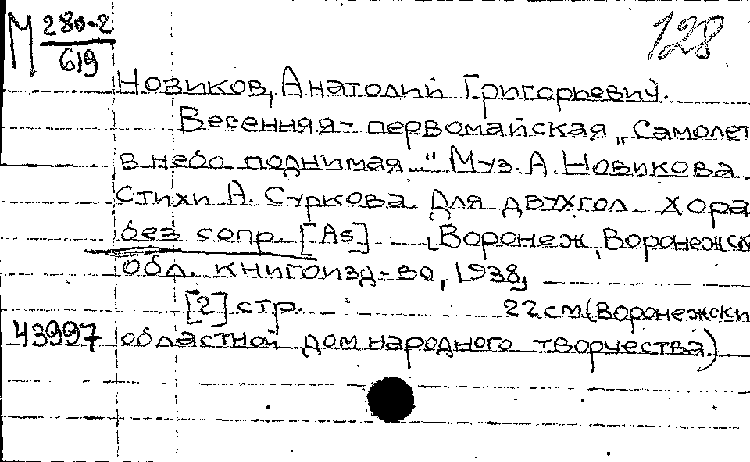 М 280-2
619
128
Новиков, Анатолий Григорьевич.
Весенняя-первомайская „Самолет
в небо поднимая..." Муз. А. Новикова
Стихи А. Суркова. Для двухгол. хора
без сопр. [As]. [Воронеж, Воронежск
обл. книгоизд-во, 1938,
[2] стр. 22 см. (Воронежски
43997 областной дом народного творчества)